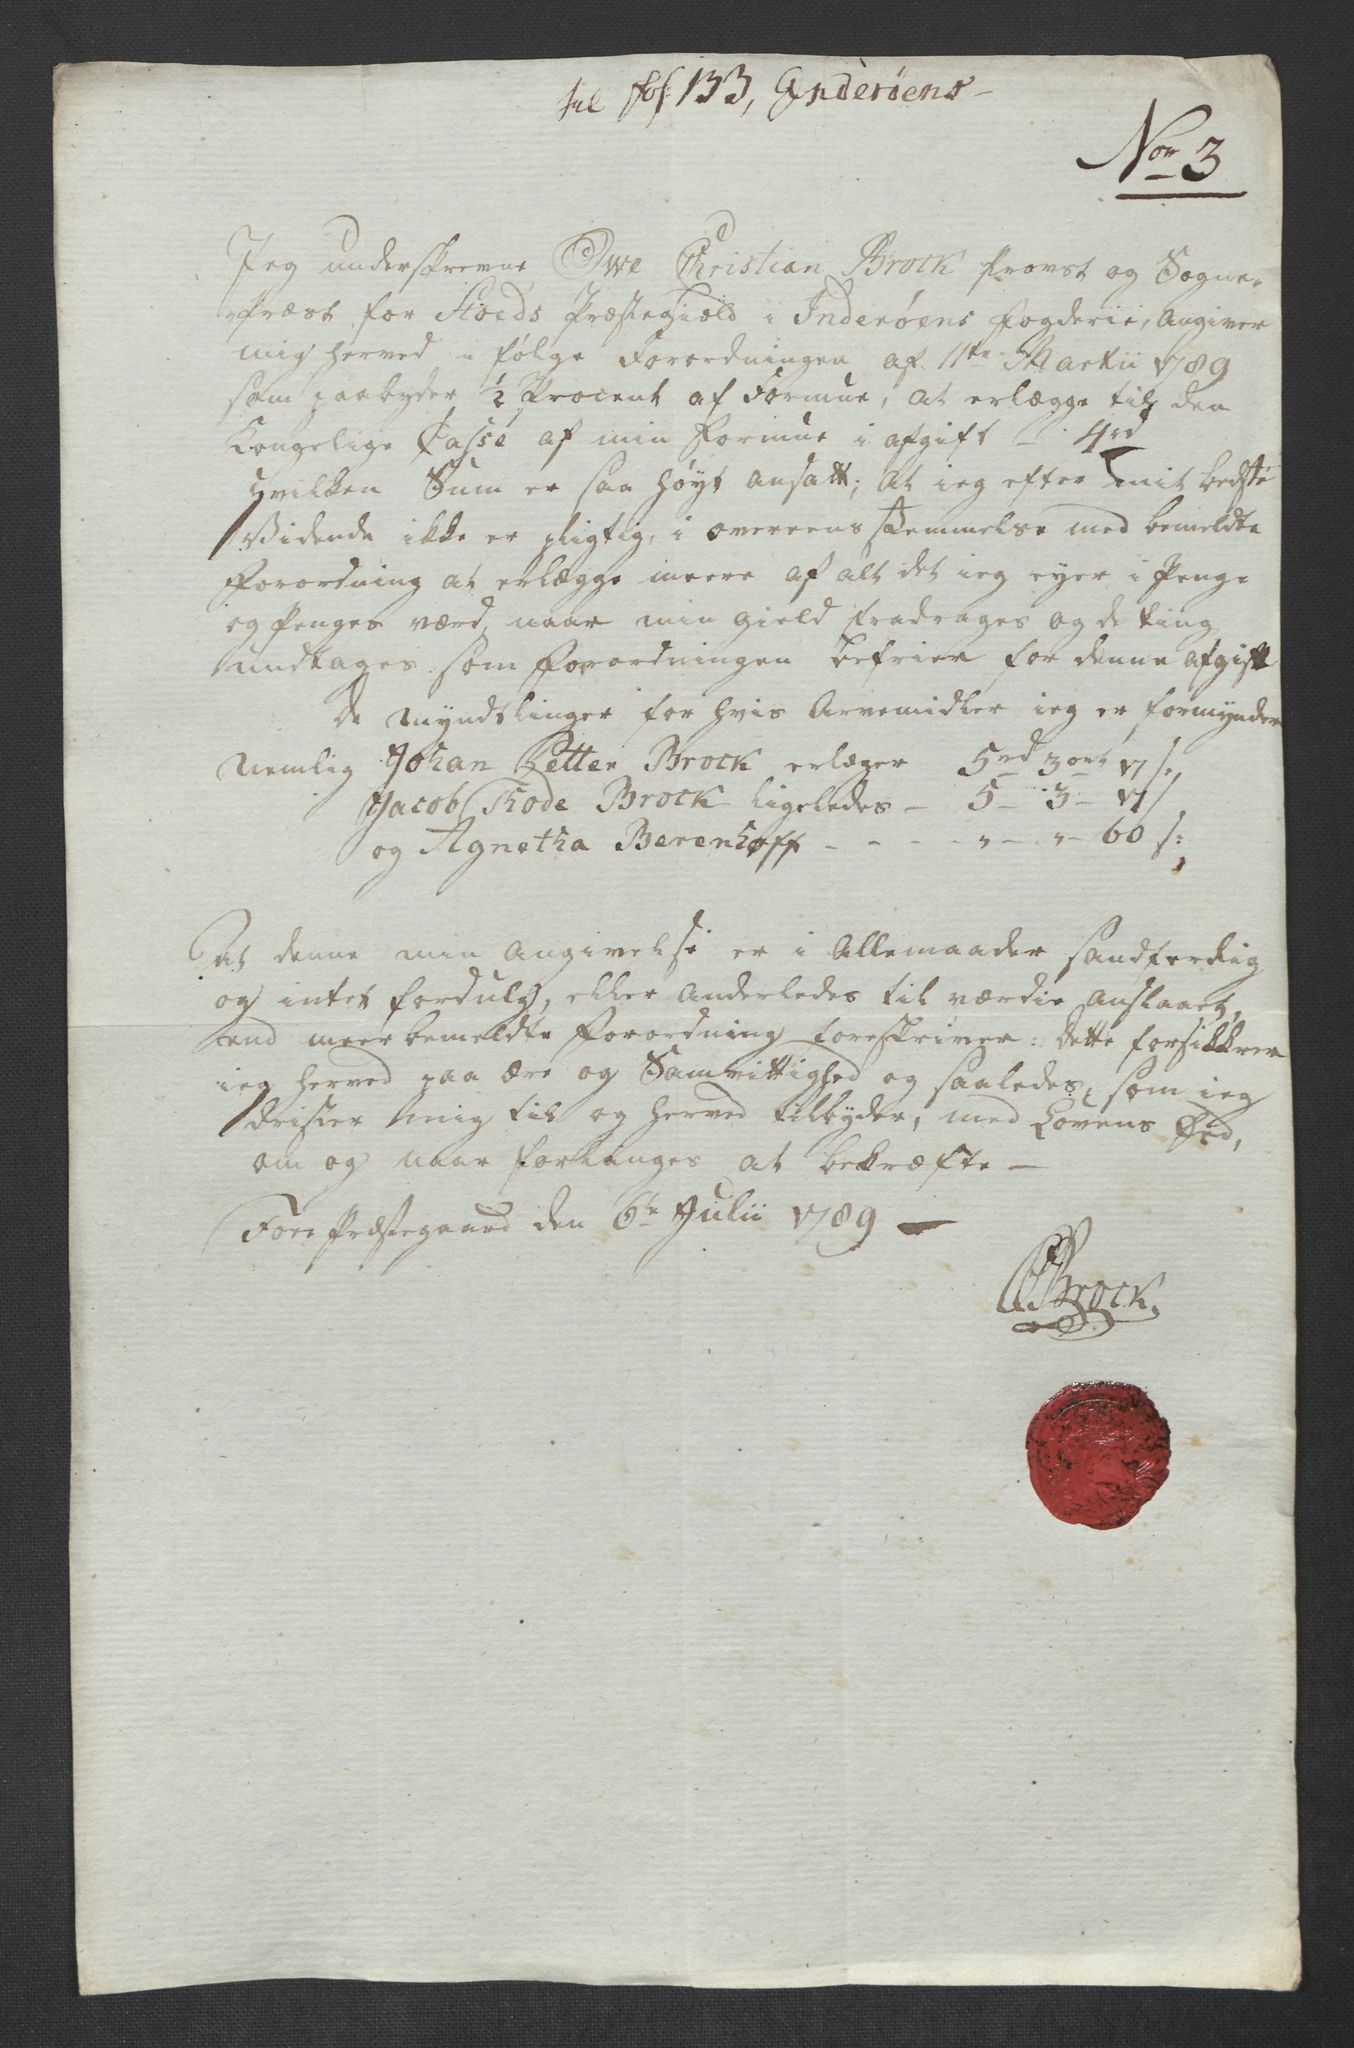 til fol 133, Inderøens
No 3
Jeg underskrevne Owe Christian Brock Provst og Sogne-
Præst for Stoeds Præstegield i Inderøens Fogderie, Angiver
mig herved i følge Forordningen af 11te Martii 1789
som paabyder ½ Procent af Formue, at erlægge til den
Kongelige Casse af min Formue i afgift - 4rd
hvilken Sum er saa høyt ansatt; at ieg efter mit bedste
Vidende ikke er pligtig, i overeensstemmelse med bemeldte
Forordning at erlægge meere af alt det ieg eyer i Penge
og Penges værd, naar min Gield fradrages og de ting
undtages som Forordningen befrier for denne Afgift
De Myndtlinger for hvis Arvemidler ieg er formynder
Nemlig Johan Petter Brock erlæger 5rd 3ort 17 s:
Jacob Thode Brock ligeledes - 5 - 3 - 17 s
og Agnetha Berenhoff - - - - " - " - 60 s:
At denne min Angivelse er i Allemaader sandferdig
og intet fordulgt, eller Anderledes til værdie Anslaaet,
end meerbemeldte Forordning foreskriver: dette forsikkrer
ieg herved paa Ære og Samvittighed og saaledes, som ieg
drister mig til og herved tilbyder, med Lovens Eed,
om og naar forlanges at bekræfte -
Foer Præstegaard den 6te Julii 1789 -
OCBrock.